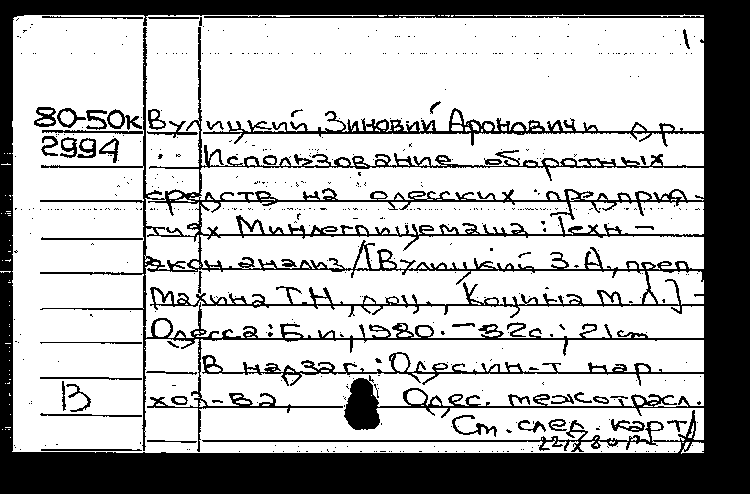 1.
80-50к Вулицкий, Зиновий Аронович и др.
2994 Использование оборотных
средств на одесских предприя-
тиях Минлегпищемаша : Техн.-
экон. анализ / [Вулицкий З.А., преп.,
Махина Т.Н., доц., Коцина М.Л.] -
Одесса : Б.и., 1980. - 82с.; 21см.
В надзаг.: Одес. ин-т нар.
В хоз-ва, Одес. межотрасл.
См. след. карт